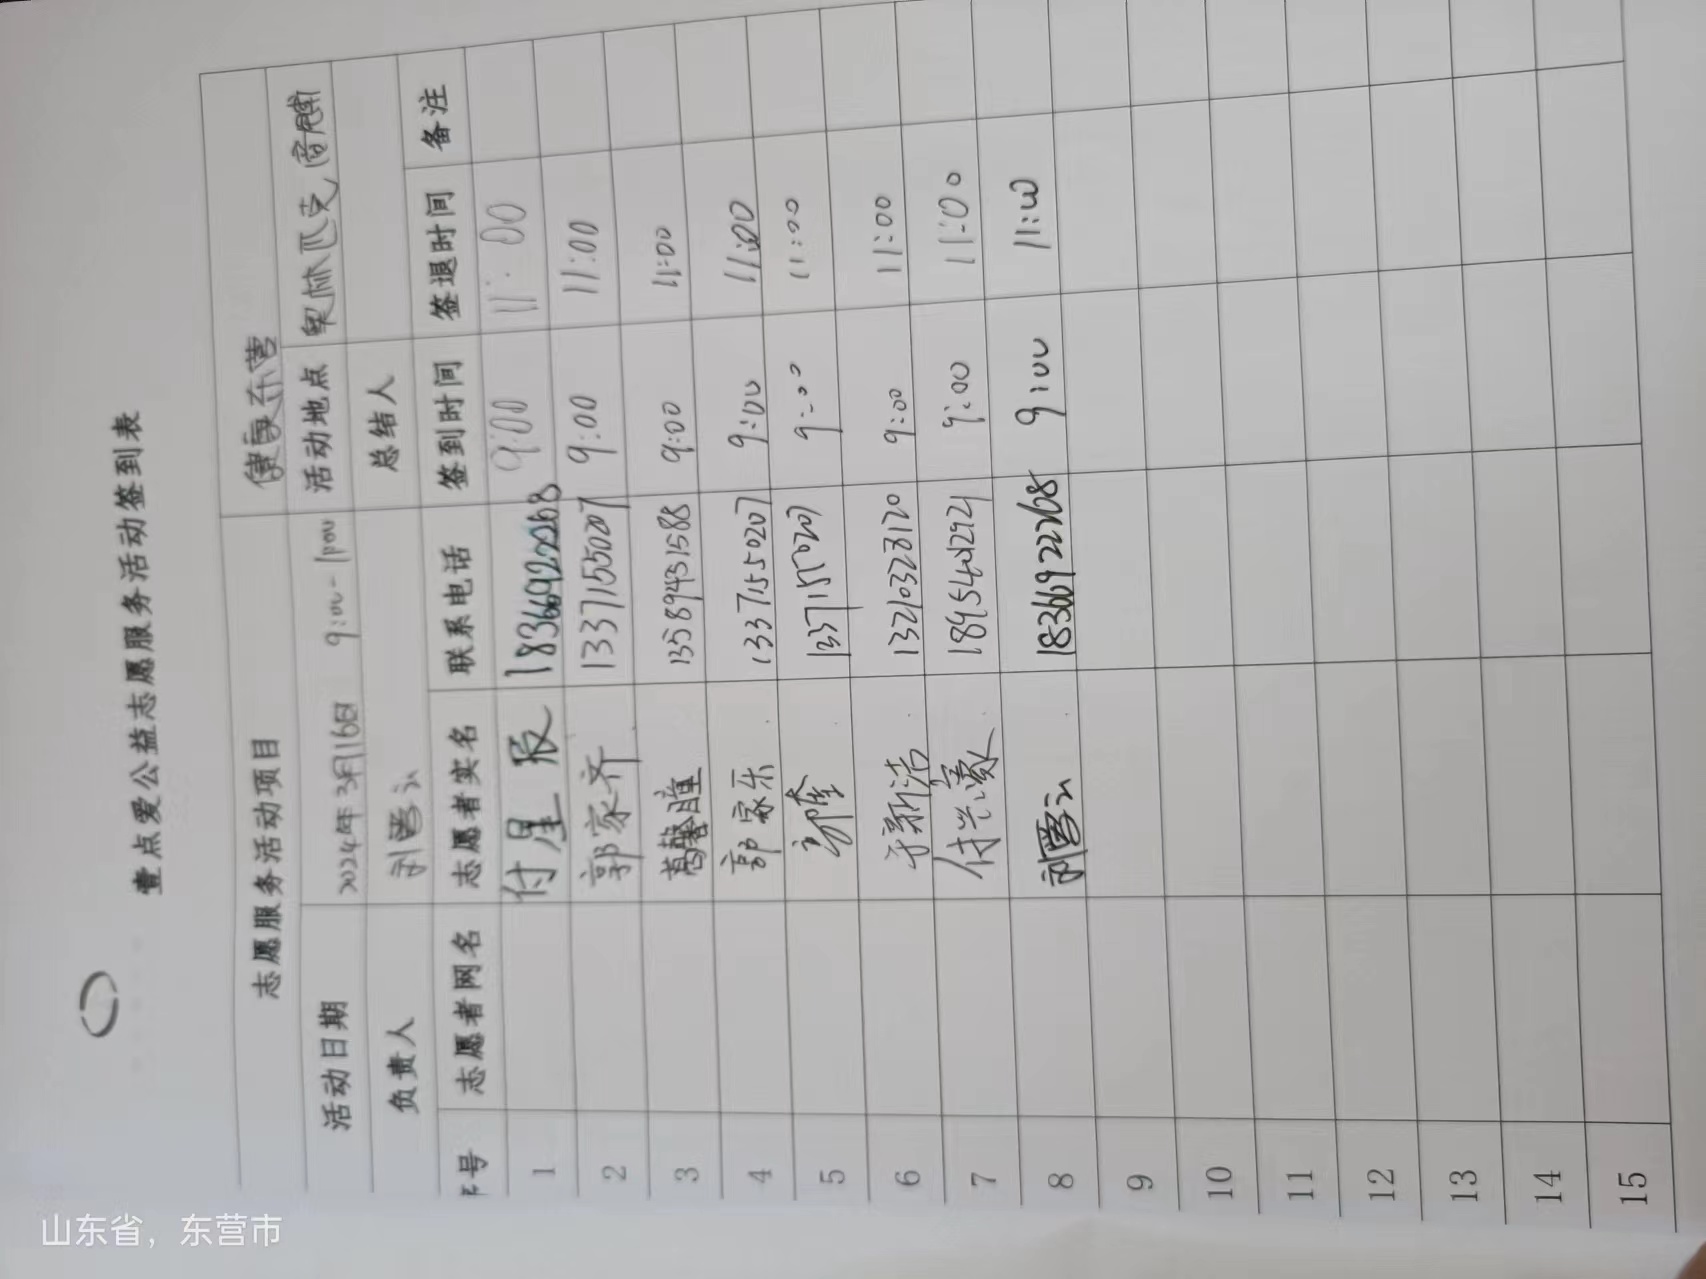 壹点爱公益志愿服务活动签到表
志愿服务活动项目 健康东营
活动日期 2024年3月16日 9:00-1100 活动地点 奥林匹克
负责人 总结人
序号 志愿者网名 志愿者实名 联系电话 签到时间 签退时间 备注
1 付星辰 18366922268 9:00 11:00
2 郭家齐 13371550207 9:00 11:00
3 葛馨瞳 13589431588 9:00 11:00
4 郭家乐 13371550207 9:00 11:00
5 13371550207 9:00 11:00
6 于新洁 13210328120 9:00 11:00
7 付兴濛 18954042921 9:00 11:00
8 18366922268 9:00 11:00
9
10
11
12
13
14
15
山东省，东营市